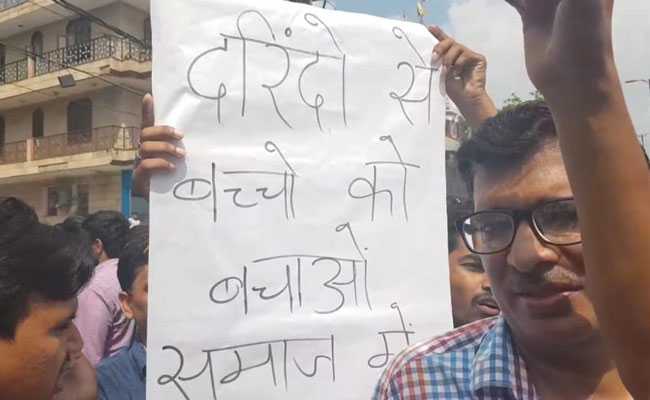 दरिंदो से
बच्चो को
बचाओं
समाज में